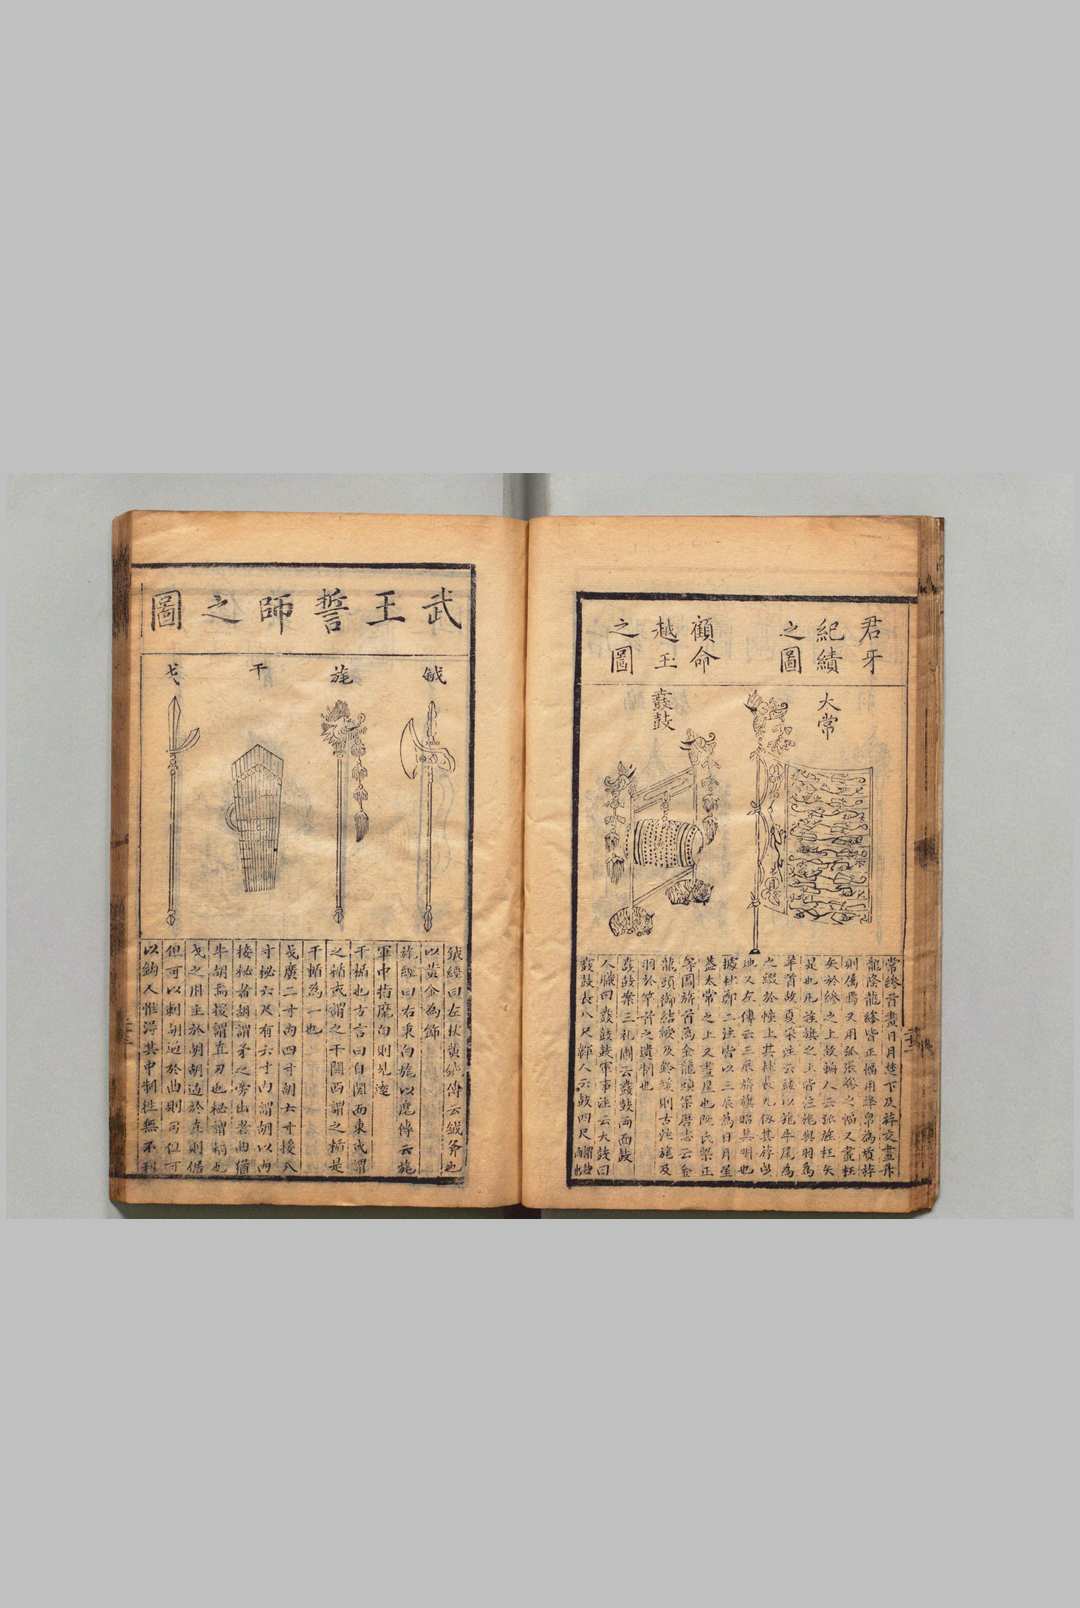 君牙
紀績
之圖
顧命
越玉
之圖
大常
鼖鼓
常終首畫日月其下及旂交畫升
龍降龍終皆正幅用絳帛為質旂
則屬焉又用弧張終之幅又畫枉
矢於終之上故輈人云弧旌枉矢
是也凡旌旗之上皆注旄與羽為
竿首故夏采注云緌以旄牛尾為
之綴於橦上其杠長九仞其旂曳
地又左傳云三辰旂旗昭其明也
據杜鄭二注皆以三辰為日月星
蓋太常之上又畫星也阮氏梁正
等圖旂首為金龍頭案唐志云金
龍頭銜結綬及鈴緌則古注旄及
羽於竿首之遺制也
鼖鼓案三礼圖云鼖鼓兩面鼓
人職曰鼖鼓鼓軍事注云大鼓曰
鼖鼓長八尺韗人云鼓四尺謂
武王誓師之圖
鉞
旄
干
戈
鉞經曰左杖黄鉞傳云鉞斧也
以黄金為飾
旄經曰右秉白旄以麾傳云旄
軍中指麾白則見逺
干楯也方言曰自関而東或謂
之楯或謂之干関西謂之楯是
干楯為一也
戈廣二寸内四寸胡六寸援八
寸柲六尺有六寸内謂胡以内
接柲者胡謂矛之旁出者曲借
牛胡為援謂直刃也柲謂柄也
戈之用主於胡胡迫於直則倨
但可以刺胡迫於曲則句但可
以鈎人惟得其中制徃無不利